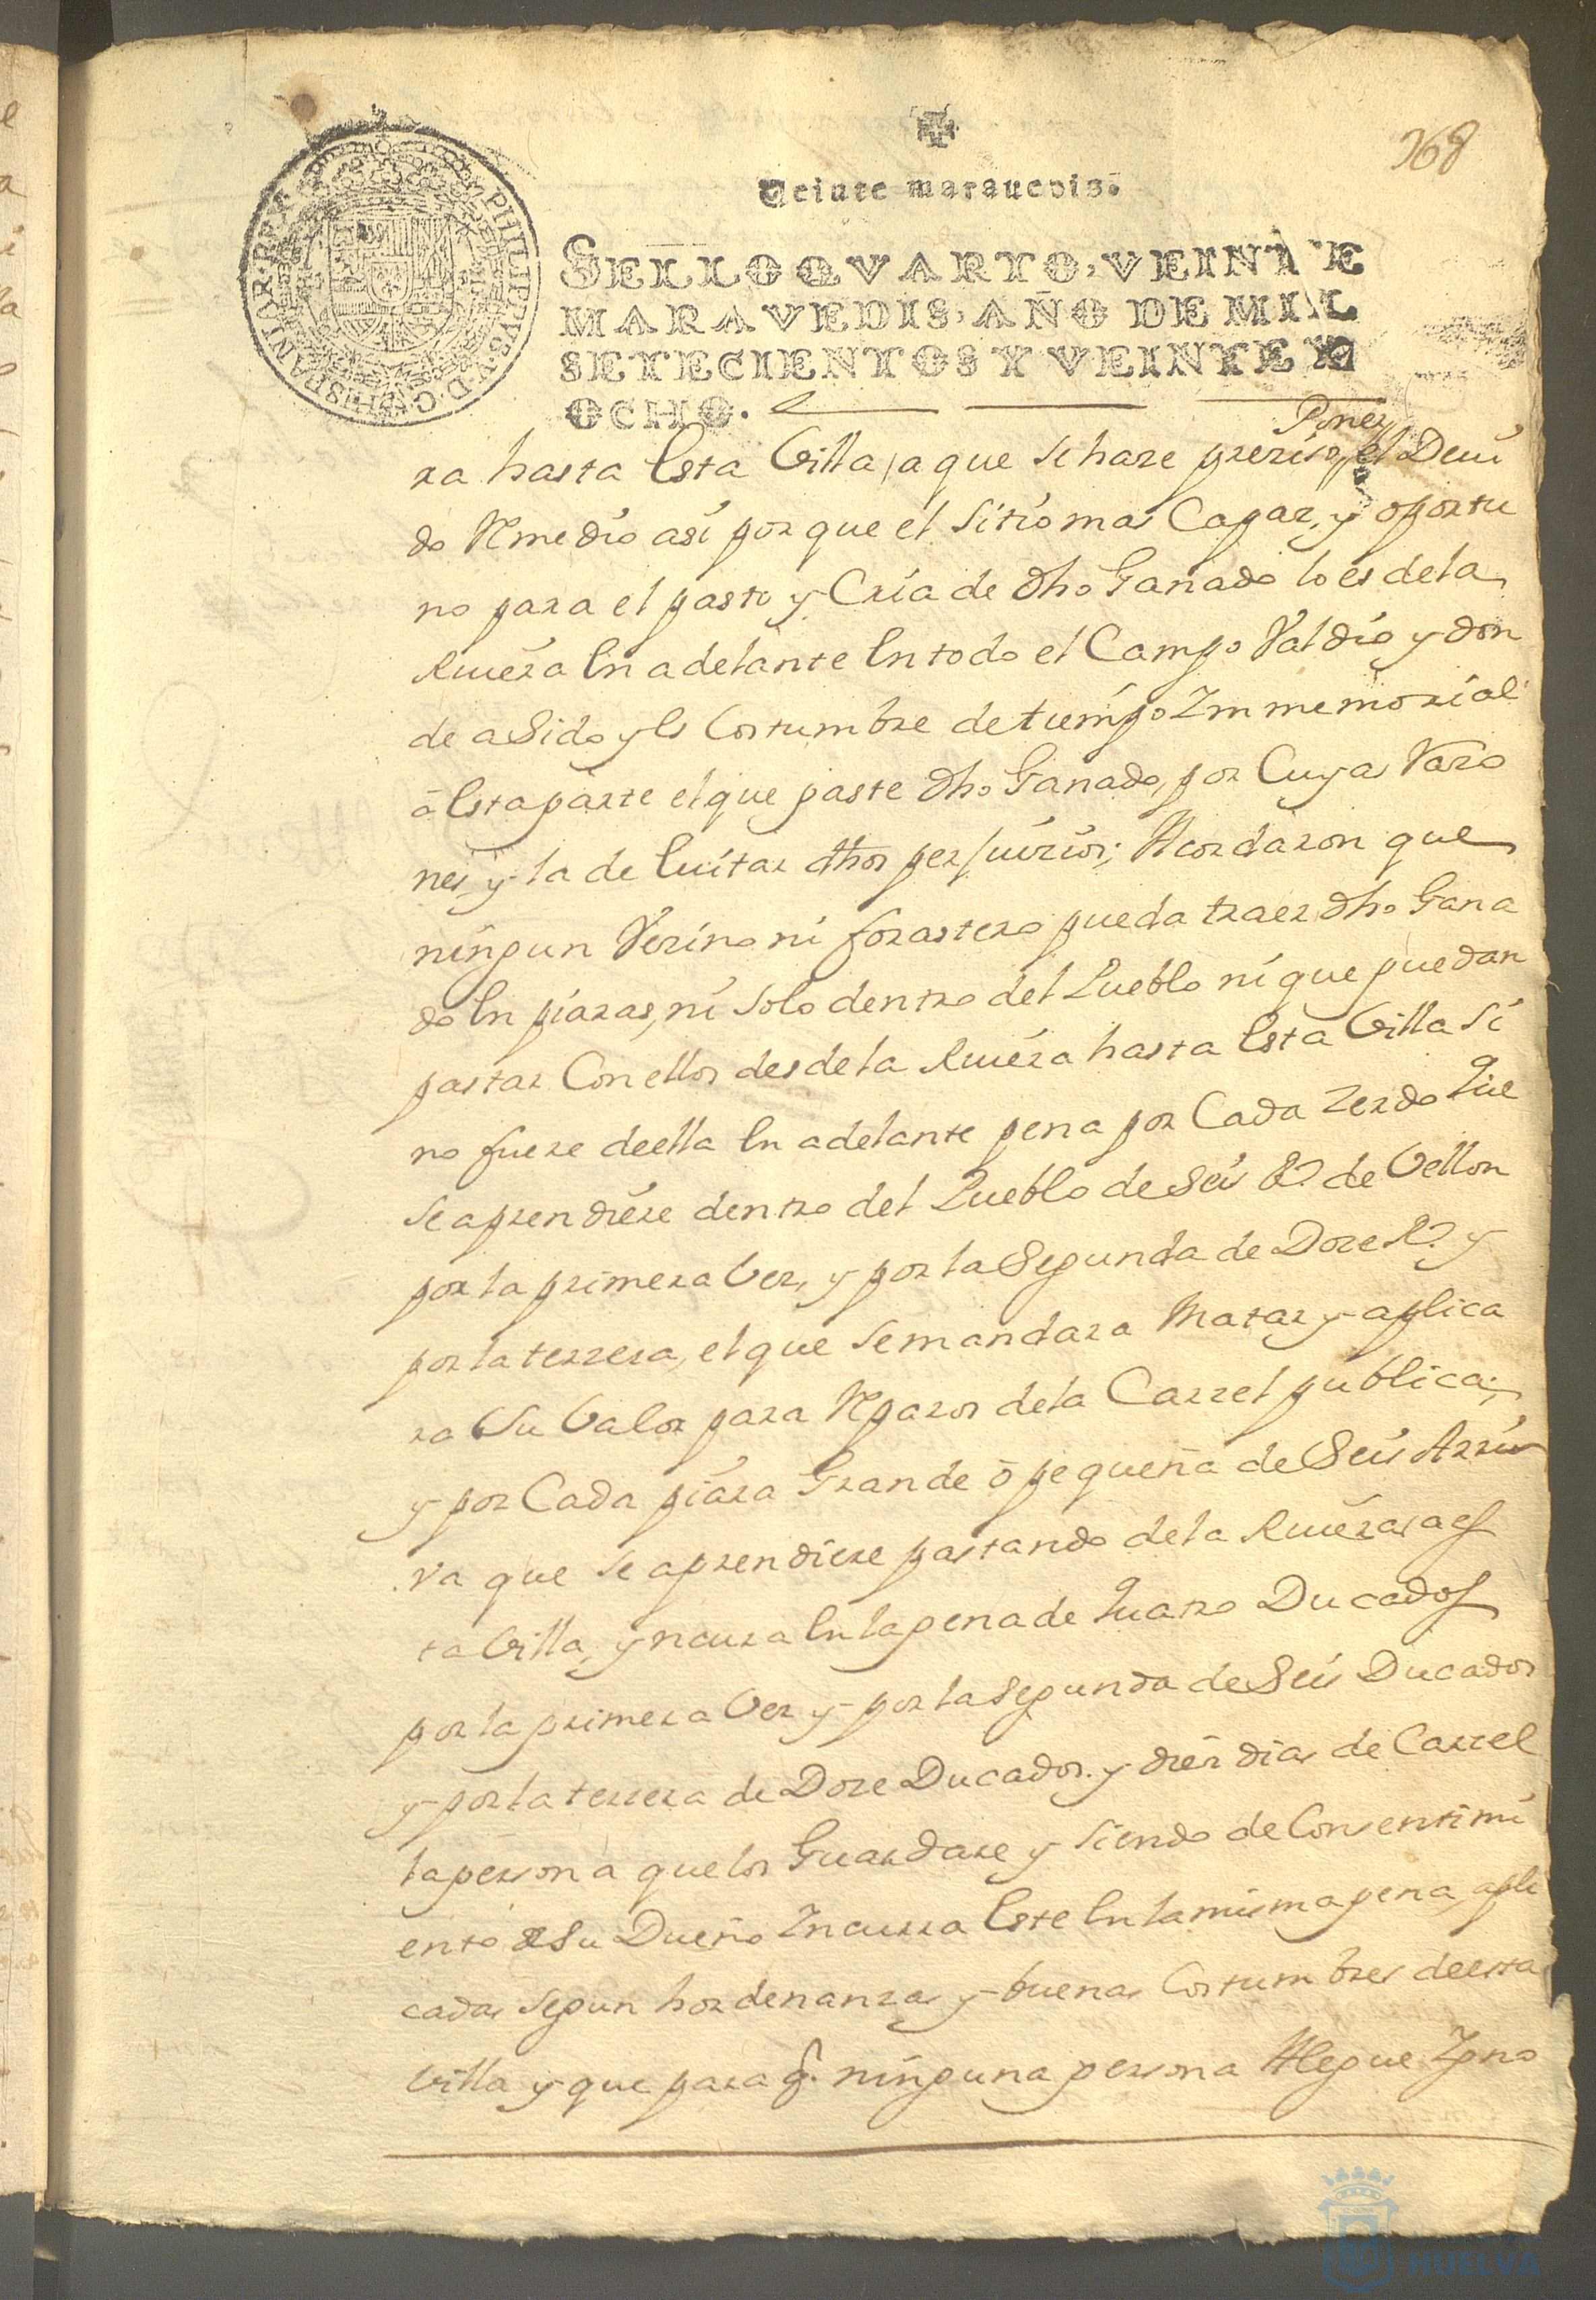 368
Veinte marauedis.
SELLO QVARTO, VEINTE
MARAVEDIS, AÑO DE MIL
SETECIENTOS Y VEINTE Y
OCHO.
PHILIPPVS·V·D·G·HISPANIAR·REX
Poner
ra hasta esta Villa, a que se haze prezíso, el Deuí
do Remedío así porque el sitío mas Capaz, y oportu
no para el pasto y Cría de dho Ganado lo es de la
Riuéra en adelante en todo el Campo Valdío y don
de a Sido y es Costumbre de tiempo Immemoríal
â esta parte el que paste dho Ganado, por Cuyas Razo
nes, y la de euítar dhos perjuizíos; Acordaron que
níngun Vezíno ní forastero pueda traer dho Gana
do en píaras, ní solo dentro del Pueblo ní que puedan
pastar Con ellos desde la Riuéra hasta esta Villa sí
no fuere de ella en adelante pena por Cada Zerdo que
se aprendíére dentro del Pueblo de Seís Rs de Vellon
por la prímera Vez, y por la Segunda de Doze Rs y
por la terzera, el que se mandara Matar y aplica
ra Su Valor para Reparos de la Carzel publica;
y por Cada píára Grande ô pequeña de Seís Arríu
va que se aprendíere pastando de la Riuéra, a es
ta Villa, yncurra en la pena de quatro Ducados
por la prímera Vez y por la Segunda de Seís Ducados
y por la terzera de Doze Ducados. y díéz días de Carzel
la persona que los Guardare y siendo de Consentimí
ento de Su Dueño Incurra este en la mísma pena, aplí
cadas segun hordenanzas y buenas Costumbres de esta
Villa y que para q. nínguna persona Alegue Igno
HUELVA